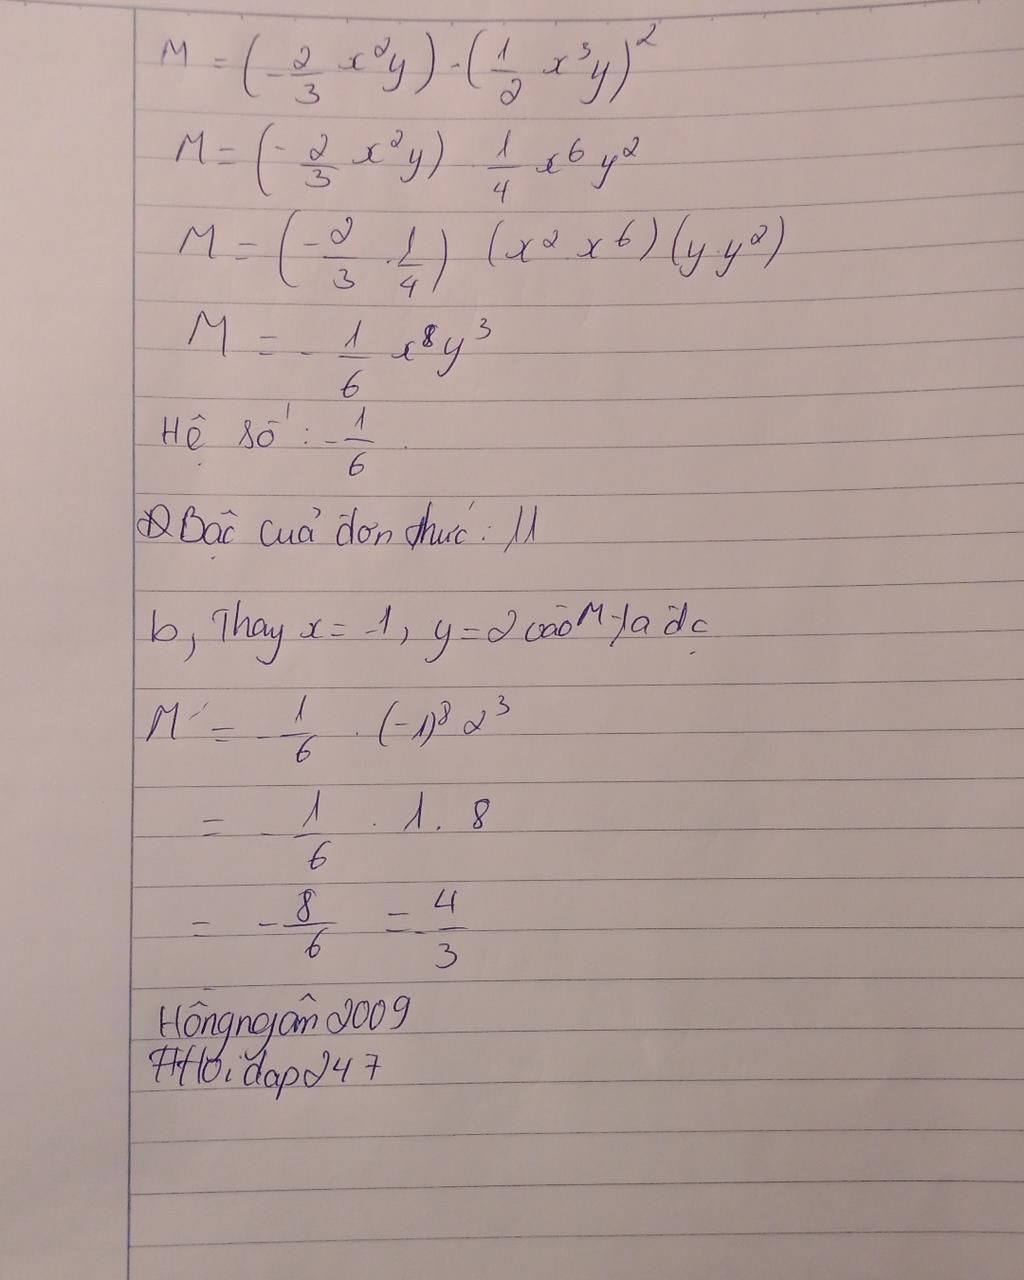 M = (-2/3 x²y) . (1/2 x³y)²
M = (-2/3 x²y) 1/4 x⁶y²
M = (-2/3 . 1/4) (x² x⁶) (y.y²)
M = -1/6 x⁸y³
Hệ số : -1/6.
Bậc của đơn thức : 11
b, Thay x = -1, y = 2 vào M ta đc
M = -1/6 . (-1)⁸ 2³
= -1/6 . 1 . 8
= -8/6 = -4/3
Hôngngân2009
#Hoidap247